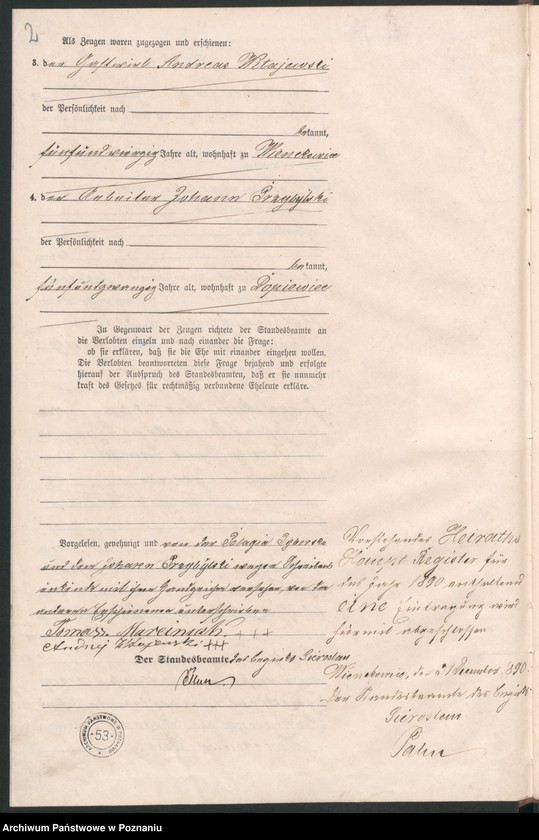 2
Als Zeugen waren zugezogen und erschienen:
3. der Gastwirt Andreas
der Persönlichkeit nach
bekannt,
fünfundvierzig Jahre alt, wohnhaft zu
4. der Arbeiter Johann Przybylski
der Persönlichkeit nach
bekannt,
fünfundzwanzig Jahre alt, wohnhaft zu
In Gegenwart der Zeugen richtete der Standesbeamte an
die Verlobten einzeln und nach einander die Frage:
ob sie erklären, daß sie die Ehe mit einander eingehen wollen.
Die Verlobten beantworteten diese Frage bejahend und erfolgte
hierauf der Ausspruch des Standesbeamten, daß er sie nunmehr
kraft des Gesetzes für rechtmäßig verbundene Eheleute erkläre.
Vorgelesen, genehmigt und von der Pelagia
und dem Johann Przybylski wegen Schreibens
unkunde mit ihren Handzeichen versehen, von den
anderen Erschienenen unterschrieben
Tomasz Marciniak +++
Andrzej +++
Der Standesbeamte des Bezirks
Vorstehendes Heiraths
Haupt Register für
das Jahr 1890 enthaltend
eine Eintragung wird
hiermit abgeschlossen
den 31 Dezember 1890.
Der Standesbeamte des Bezirks
ARCHIWUM PAŃSTWOWE W POZNANIU
53
Archiwum Państwowe w Poznaniu